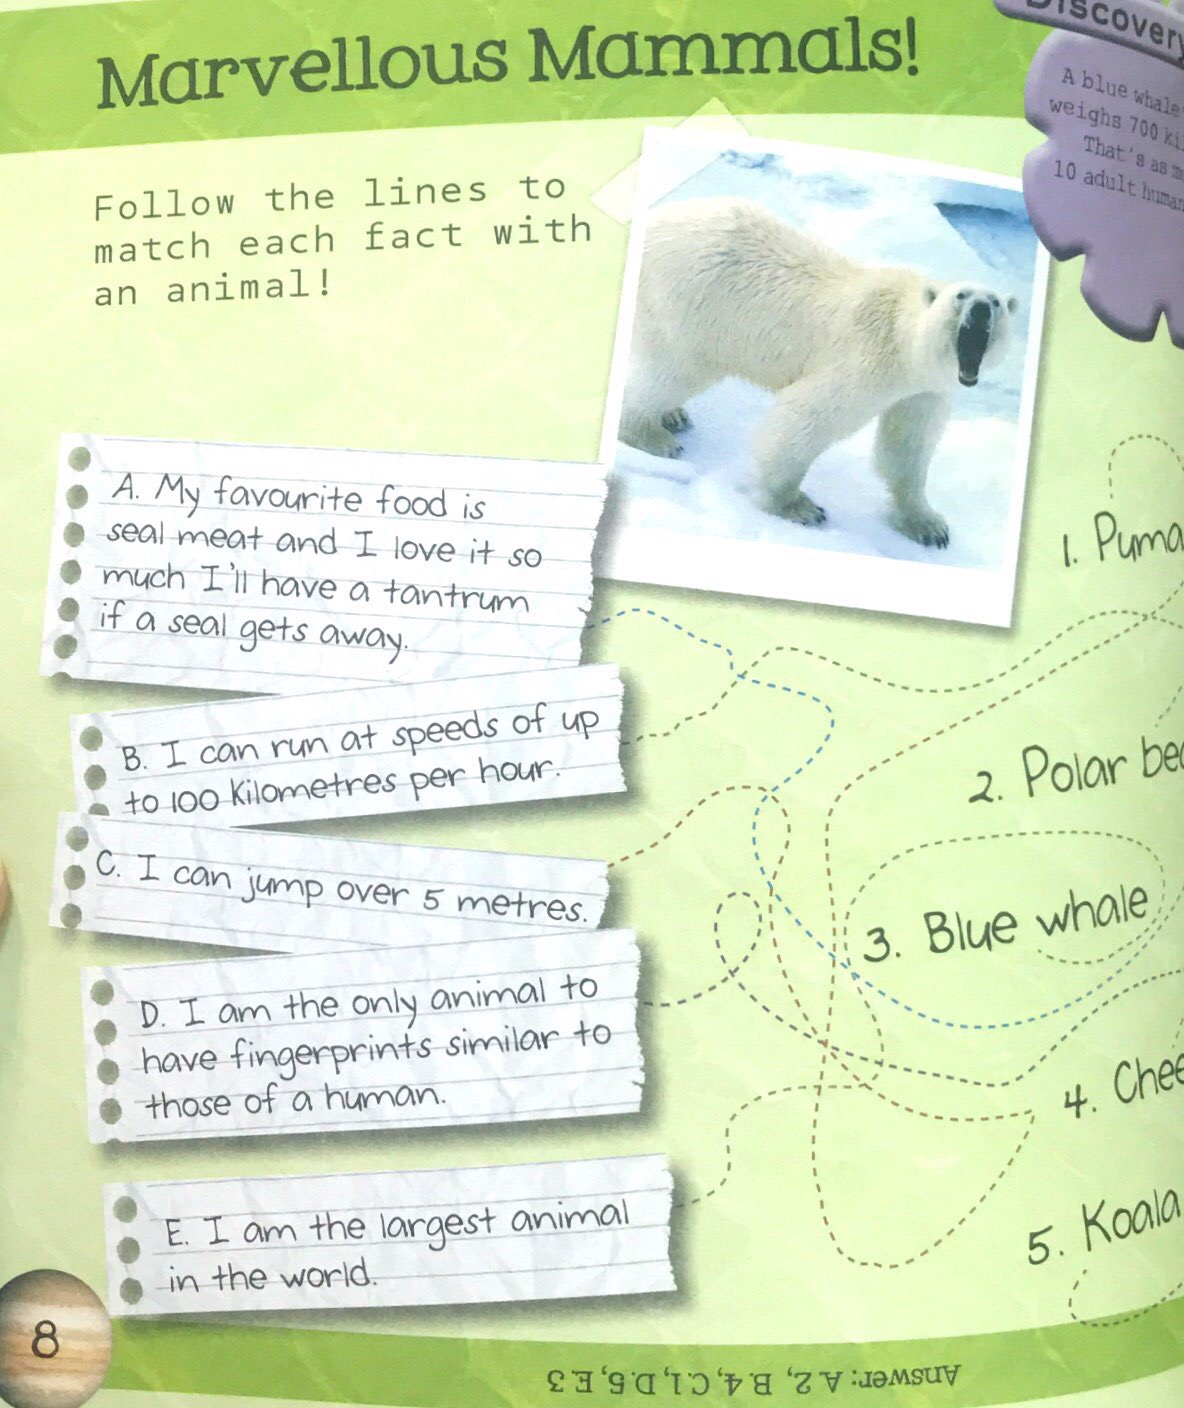 Marvellous Mammals!
Discovery
A blue whale
weighs 700
That's as
10 adult
Follow the lines to
match each fact with
an animal!
A. My favourite food is
seal meat and I love it so
much I'll have a tantrum
if a seal gets away.
B. I can run at speeds of up
to 100 kilometres per hour.
C. I can jump over 5 metres.
D. I am the only animal to
have fingerprints similar to
those of a human.
E. I am the largest animal
in the world.
1. Puma
2. Polar
3. Blue whale
4.
5. Koala
8
Answer: A.2, B.4, C.1, D.5, E.3